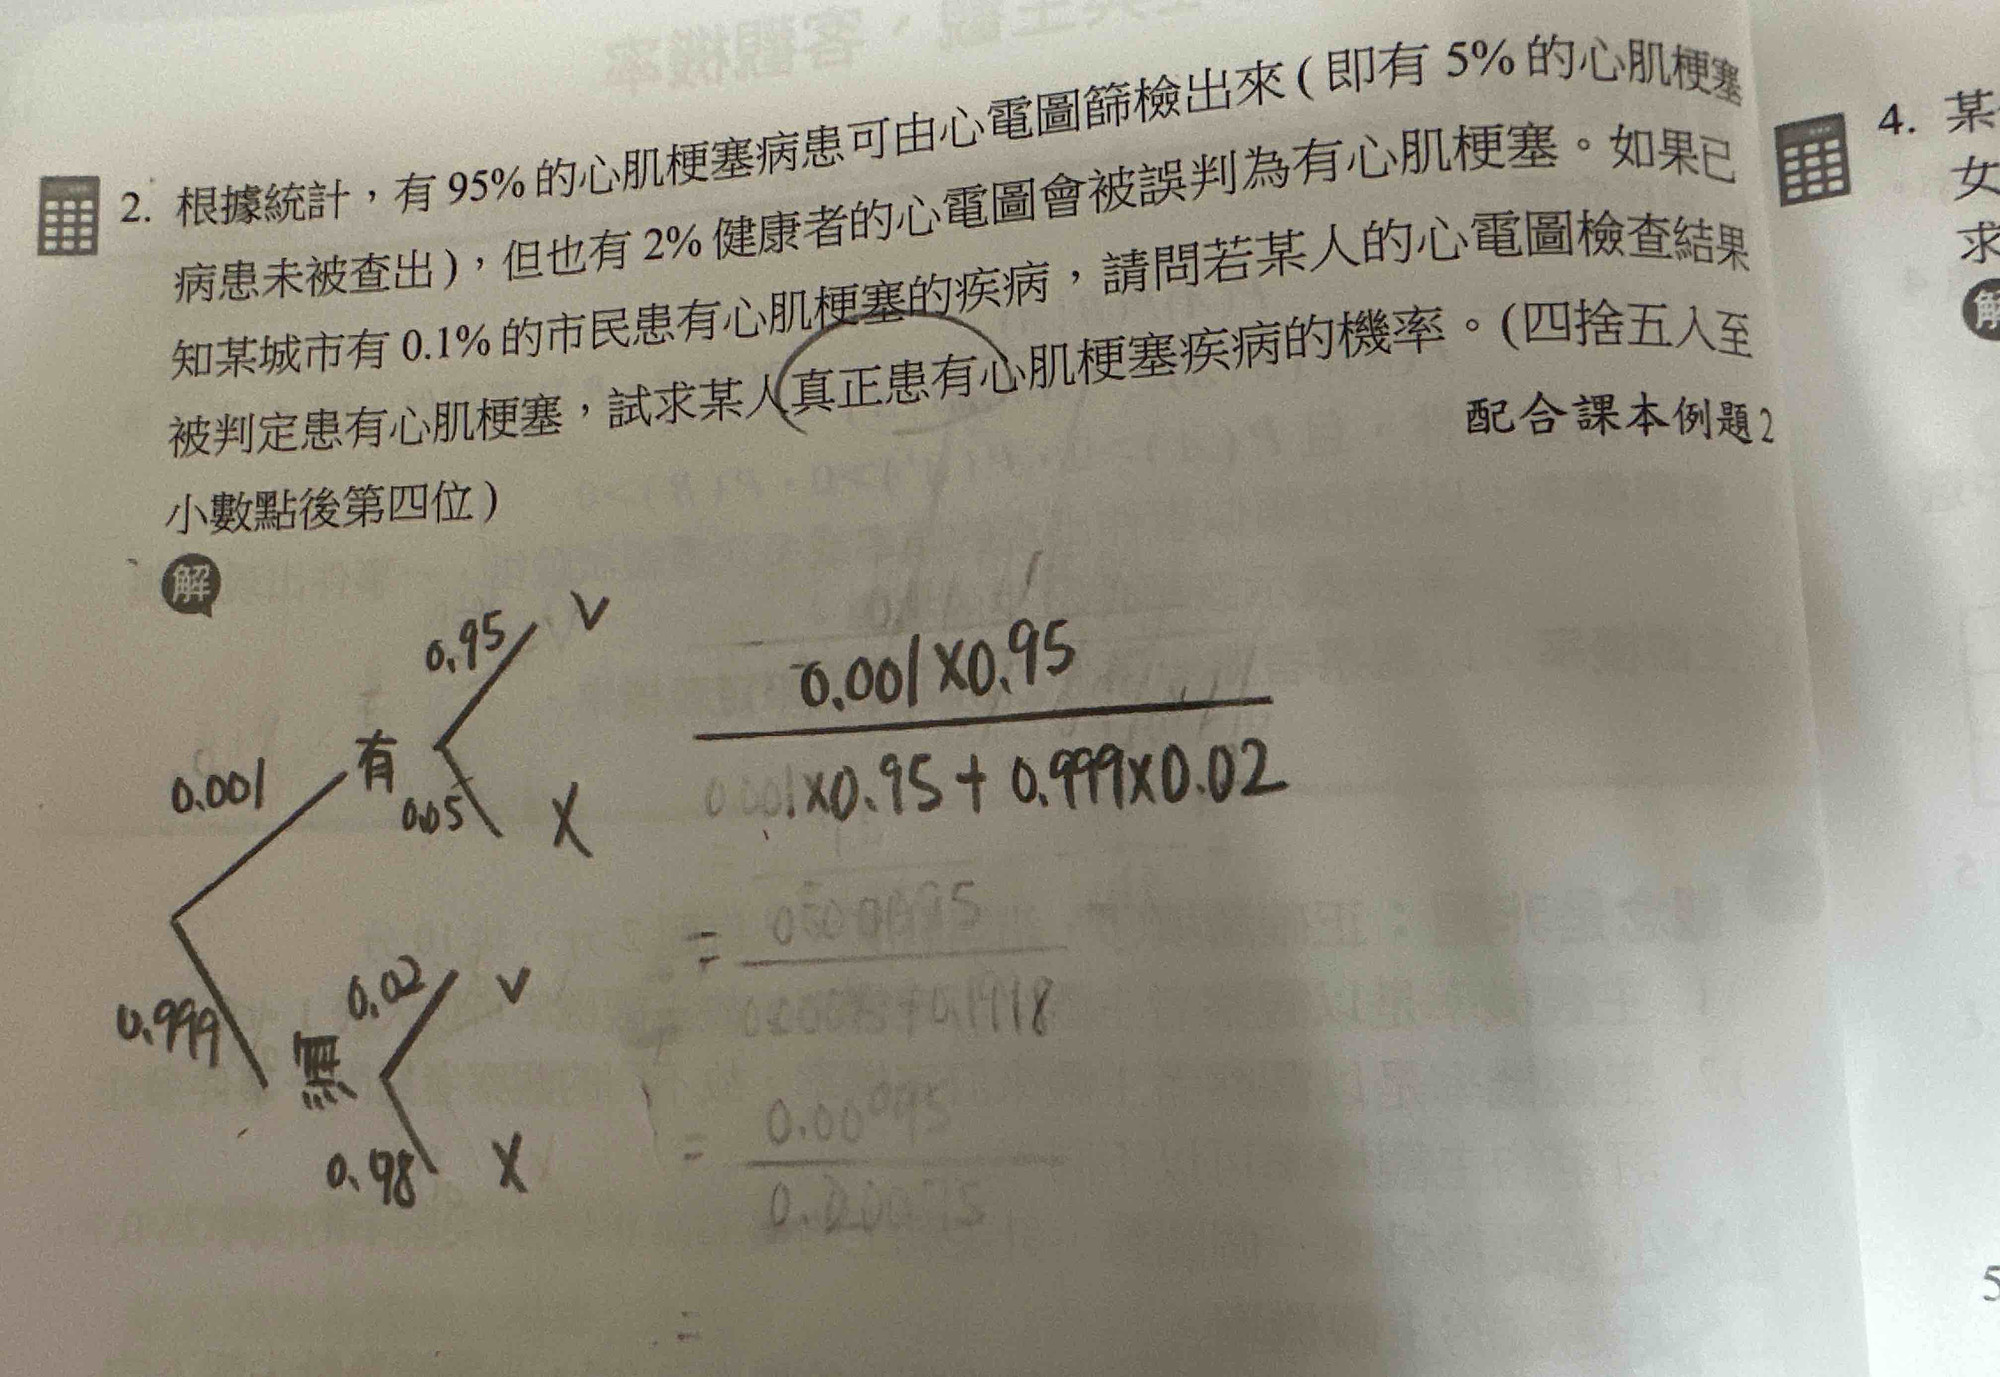 2. 根據統計，有 95% 的心肌梗塞病患可由心電圖篩檢出來 ( 即有 5% 的心肌梗塞
病患未被查出 )，但也有 2% 健康者的心電圖會被誤判為有心肌梗塞。如果已
知某城市有 0.1% 的市民患有心肌梗塞的疾病，請問若某人的心電圖檢查結果
被判定患有心肌梗塞，試求某人真正患有心肌梗塞疾病的機率。(四捨五入至
小數點後第四位)
配合課本例題2
解
0.95 V
0.001 有
0.05 X
0.999
0.02 V
0.98 X
0.001×0.95
0.001×0.95+0.999×0.02
=
0.00095
=
0.00095
=
4. 某
女
求
解
5